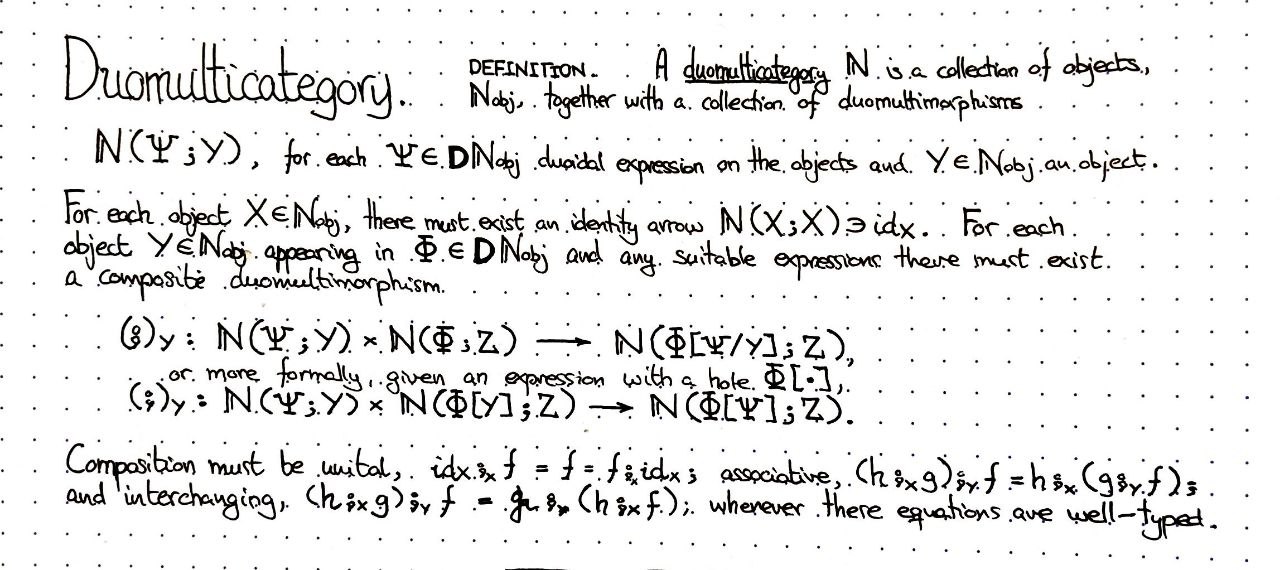 Duomulticategory.
DEFINITION. A duomulticategory ℕ is a collection of objects,
ℕobj, together with a collection of duomultimorphisms
ℕ(Ψ;Y), for each Ψ∈𝐃ℕobj duoidal expression on the objects and Y∈ℕobj an object.
For each object X∈ℕobj, there must exist an identity arrow ℕ(X;X)∋idx. For each
object Y∈ℕobj appearing in Φ∈𝐃ℕobj and any suitable expressions there must exist
a composite duomultimorphism.
(⨾)Y : ℕ(Ψ;Y) × ℕ(Φ;Z) ⟶ ℕ(Φ[Ψ/Y];Z),
or more formally, given an expression with a hole Φ[•],
(⨾)Y : ℕ(Ψ;Y) × ℕ(Φ[Y];Z) ⟶ ℕ(Φ[Ψ];Z).
Composition must be unital, idx⨾x f = f = f⨾idx; associative, (h⨾x g)⨾y f = h⨾x (g⨾y f);
and interchanging, (h⨾x g)⨾y f = g⨾y (h⨾x f); whenever there equations are well-typed.